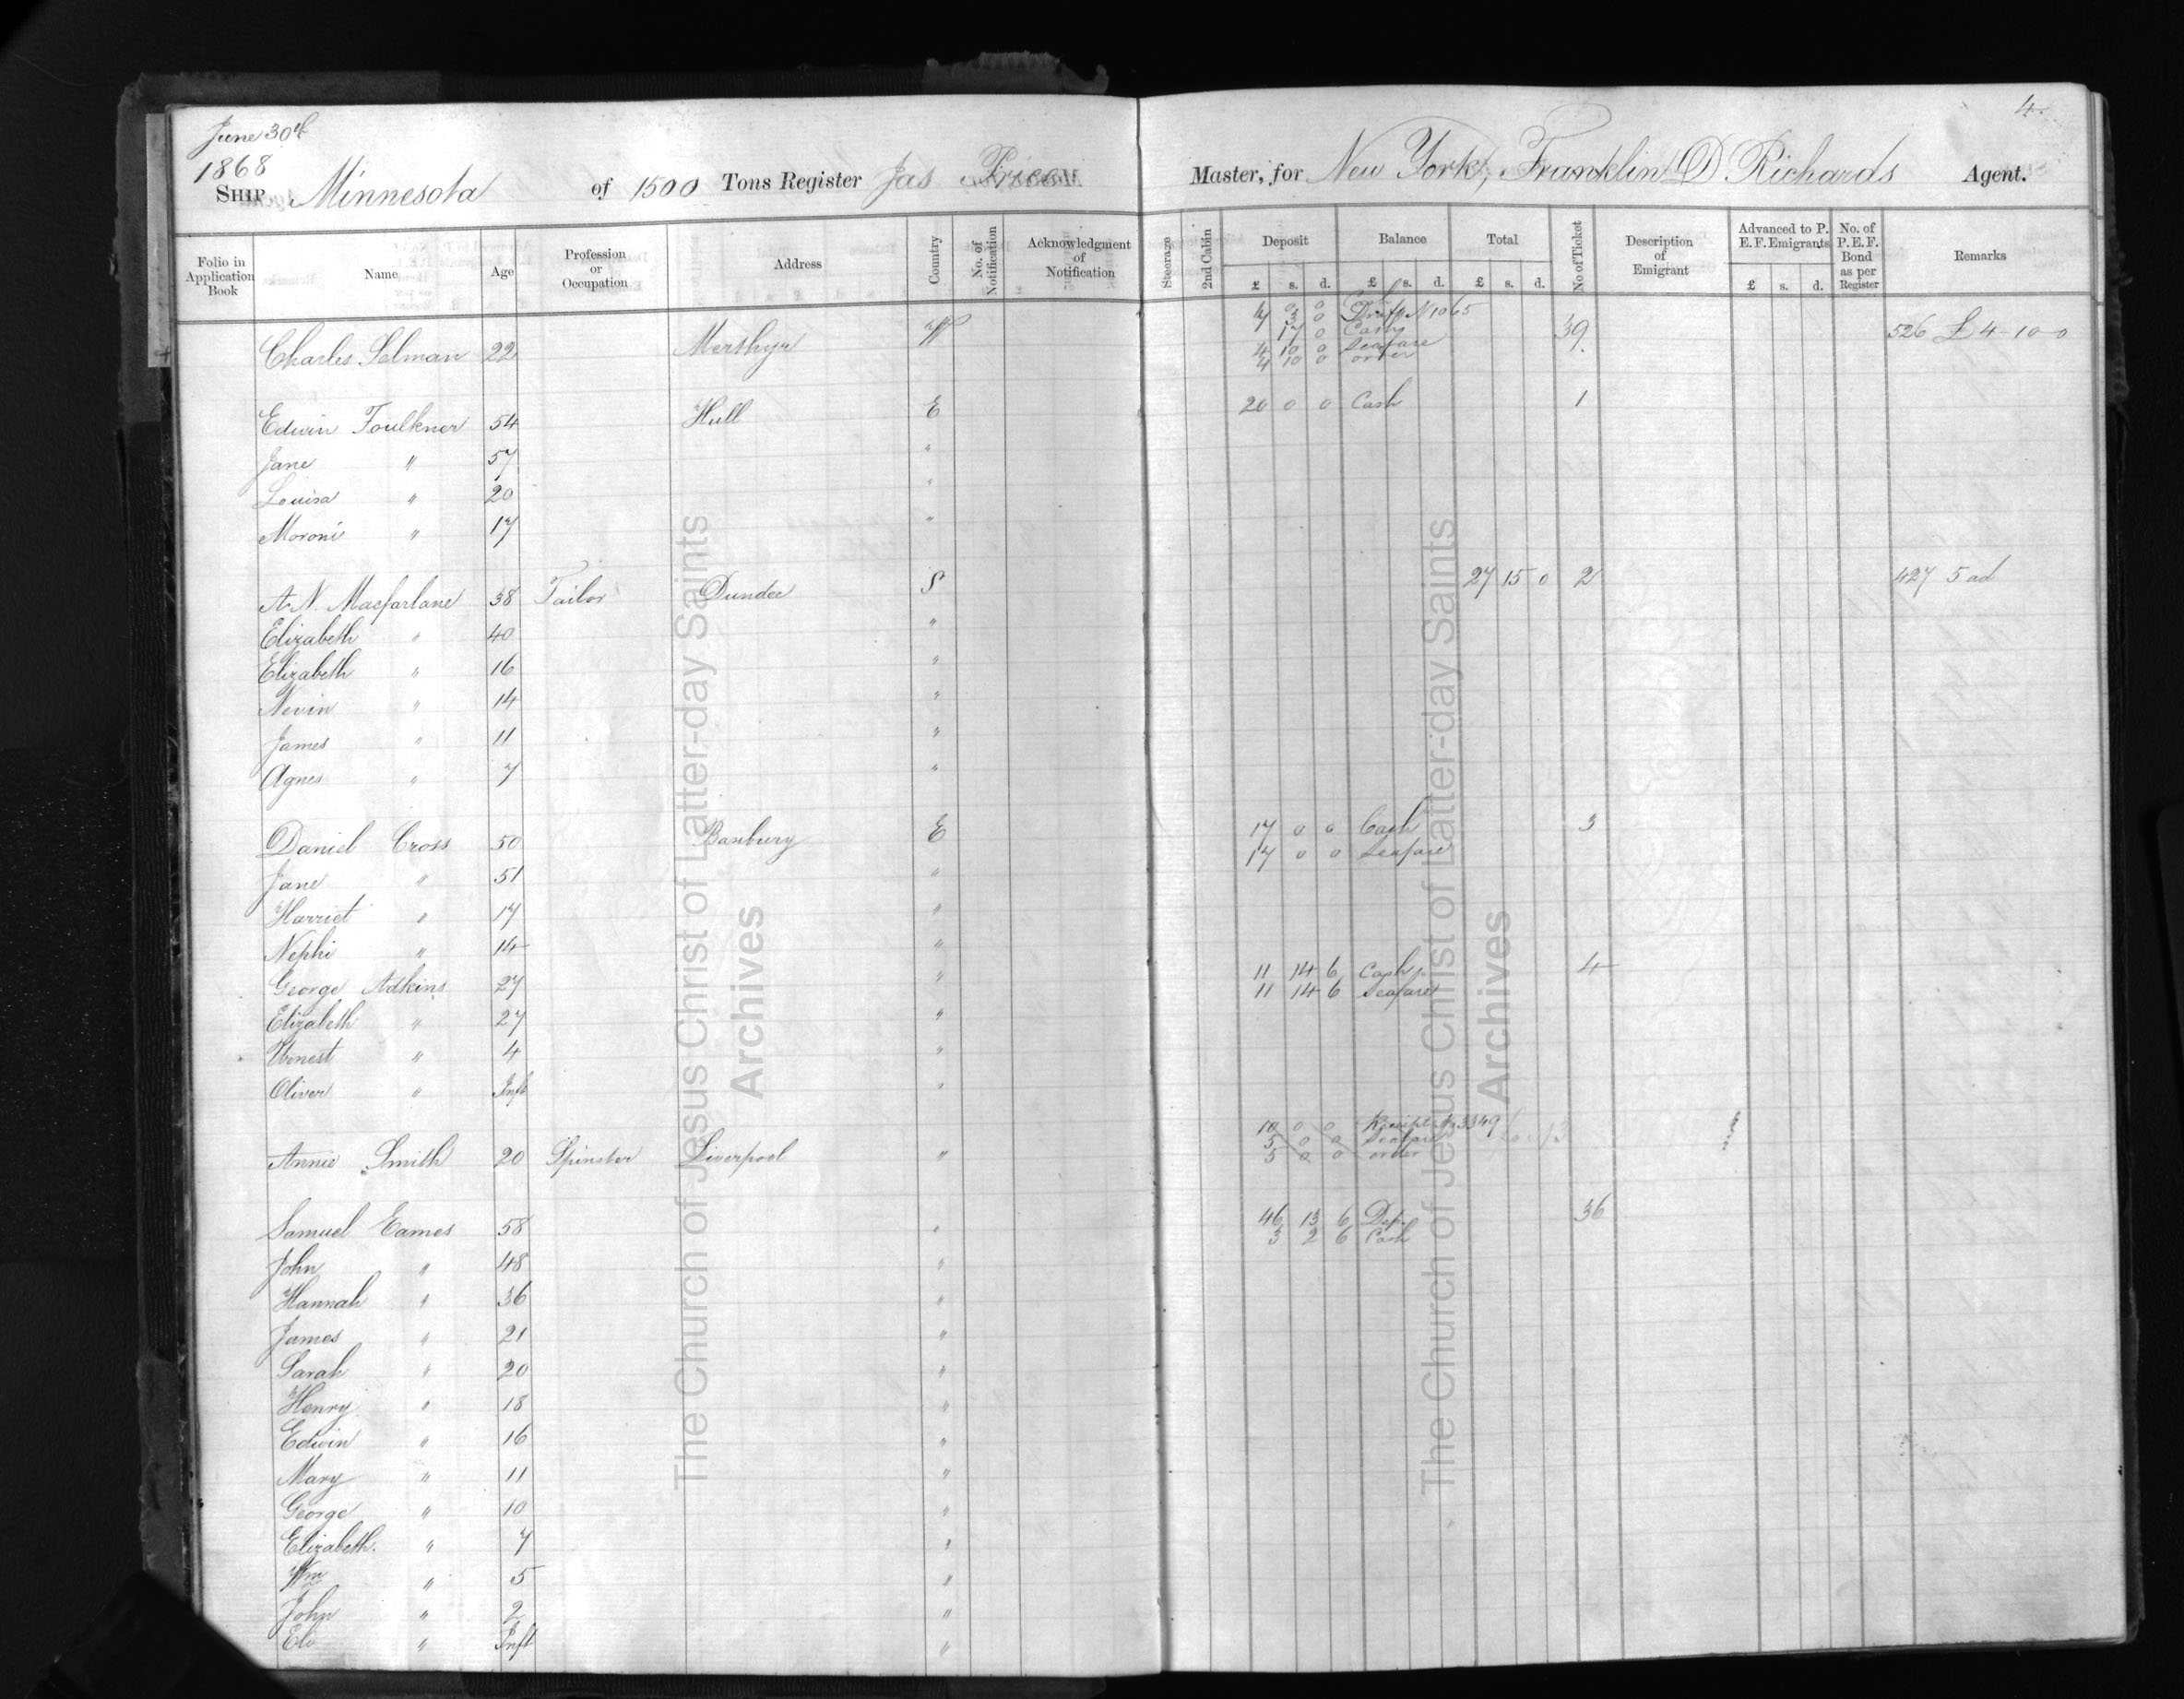 4.
June 30th
1868
SHIP Minnesota of 1500 Tons Register Jas Price Master, for New York, Franklin D Richards Agent.
Folio in Application Book Name Age Profession or Occupation Address Country No. of Notification Acknowledgment of Notification Steerage 2nd Cabin Deposit £ s. d. Balance £ s. d. Total £ s. d. No of Ticket Description of Emigrant Advanced to P. E. F. Emigrants £ s. d. No. of P. E. F. Bond as per Register Remarks
3 0 Draft N 1065
17 0 Cash
Charles Selman 22 Merthyr W 4 10 0 Seafare 39 526 £ 4-10-0
4 10 0 order
Edwin Foulkner 54 Hull E 20 0 0 Cash 1
Jane " 57 "
Louisa " 20 "
Moroni " 17 "
A. N. Macfarlane 38 Tailor Dundee S 27 15 0 2 427 5 ad
Elizabeth " 40 "
Elizabeth " 16 "
Nevin " 14 "
James " 11 "
Agnes " 7 "
Daniel Cross 50 Banbury E 17 0 0 Cash 3
17 0 0 Seafare
Jane " 51 "
Harriet " 17 "
Nephi " 14 "
George Adkins 27 " 11 14 6 Cash 4
11 14 6 Seafare
Elizabeth " 27 "
" 4 "
Oliver " Inft "
10 0 0 Receipt No 3349
5 0 0 Seafare
Annie Smith 20 Spinster Liverpool " 5 0 0 order
Samuel Eames 58 " 46 13 6 Dep. 36
3 2 6 Cash
John " 48 "
Hannah " 36 "
James " 21 "
Sarah " 20 "
Henry " 18 "
Edwin " 16 "
Mary " 11 "
George " 10 "
Elizabeth. " 7 "
Wm " 5 "
John " 2 "
" Inft "
The Church of Jesus Christ of Latter-day Saints
Archives
The Church of Jesus Christ of Latter-day Saints
Archives